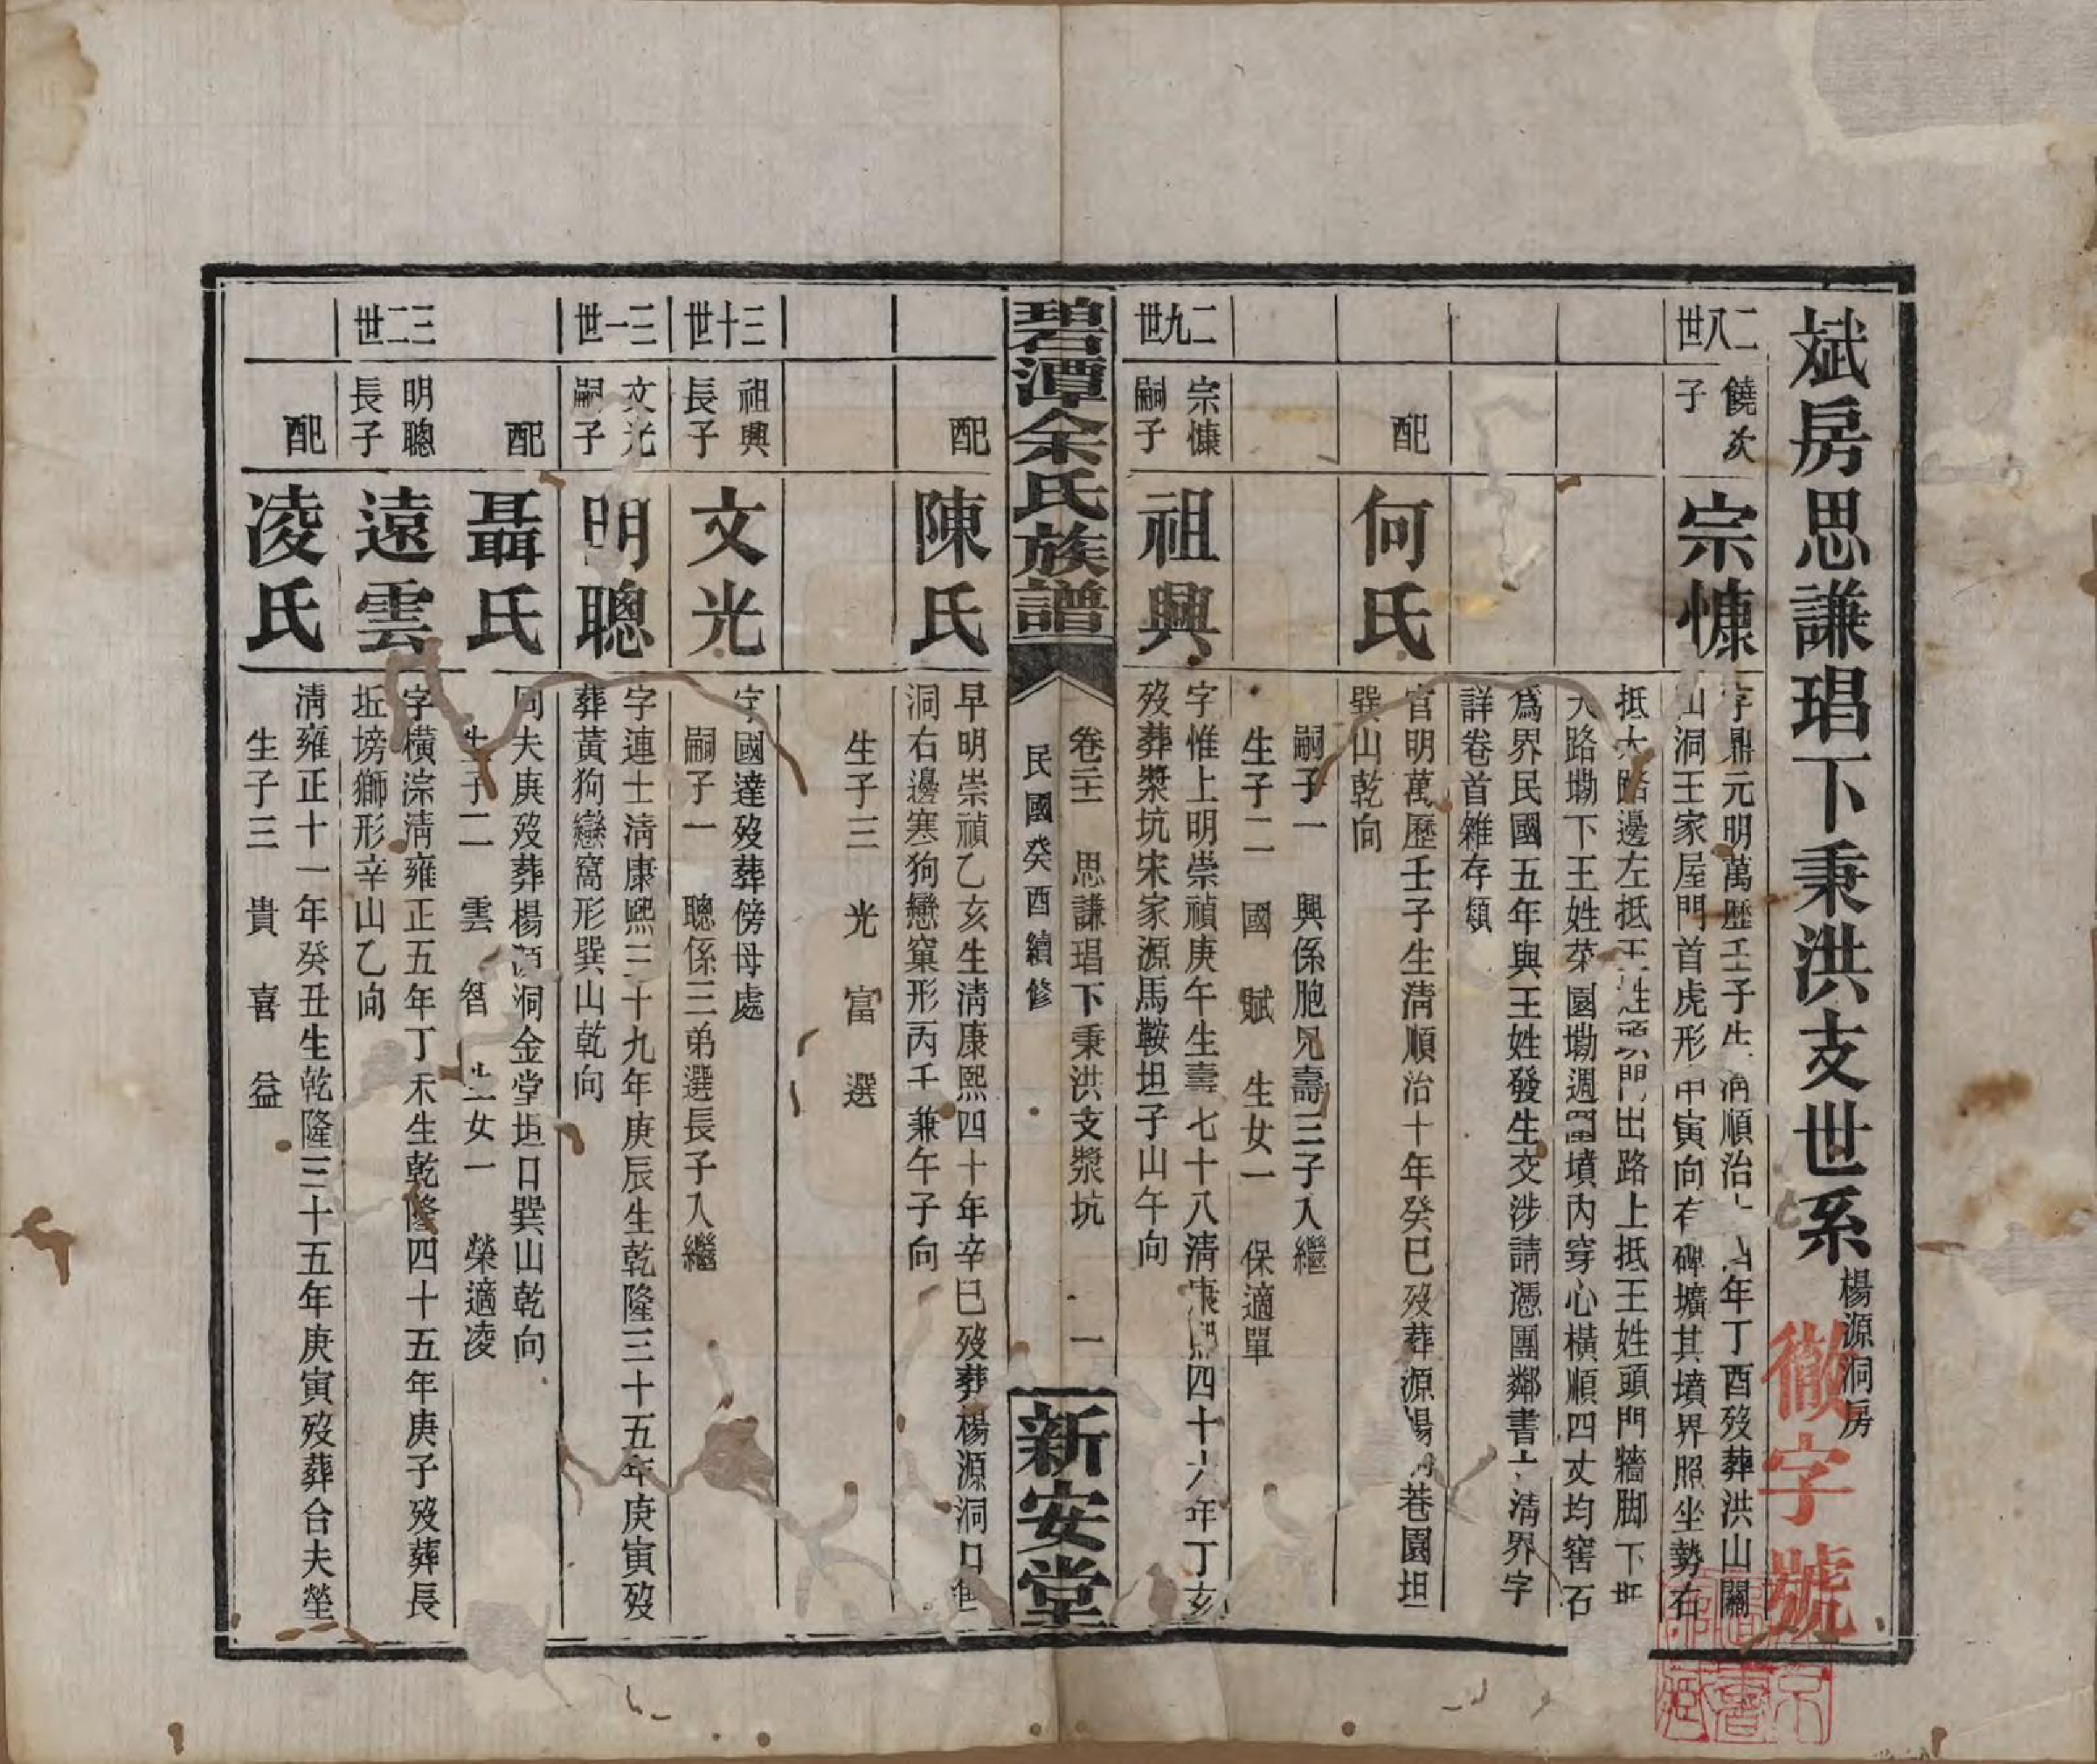 斌房思謙琩下秉洪支世系 楊源洞房
徽字號
二八世
饒次
子
宗慷
字鼎元明萬歷壬子生清順治十四年丁酉歿葬洪山關
山洞王家屋門首虎形申寅向有碑壙其墳界照坐勢右
抵大路邊左抵王姓頭門出路上抵王姓頭門牆脚下抵
大路墈下王姓菜園墈週圍墳內穿心橫順四丈均窖石
爲界民國五年與王姓發生交涉請憑團鄰書立清界字
詳卷首雜存類
配
何氏
官明萬歷壬子生清順治十年癸巳歿葬源楊洞巷園坦
巽山乾向
嗣子一 興係胞兄壽三子入繼
生子二 國 賦 生女一 保適單
二九世
宗慷
嗣子
祖興
字惟上明崇禎庚午生壽七十八清康熙四十六年丁亥
歿葬漿坑宋家源馬鞍坦子山午向
碧潭余氏族譜
卷二十一 思謙琩下秉洪支漿坑 一
民國癸酉續修
新安堂
配
陳氏
早明崇禎乙亥生清康熙四十年辛巳歿葬楊源洞口
洞右邊寒狗戀窠形丙壬兼午子向
生子三 光 富 選
三十世
祖興
長子
文光
字國達歿葬傍母處
嗣子一 聰係三弟選長子入繼
三一世
文光
嗣子
明聰
字連士清康熙三十九年庚辰生乾隆三十五年庚寅歿
葬黃狗戀窩形巽山乾向
配
聶氏
同夫庚歿葬楊源洞金堂坦口巽山乾向
生子二 雲 智 生女一 榮適凌
三二世
明聰
長子
遠雲
字橫淙清雍正五年丁未生乾隆四十五年庚子歿葬長
坵塝獅形辛山乙向
配
凌氏
清雍正十一年癸丑生乾隆三十五年庚寅歿葬合夫塋
生子三 貴 喜 益